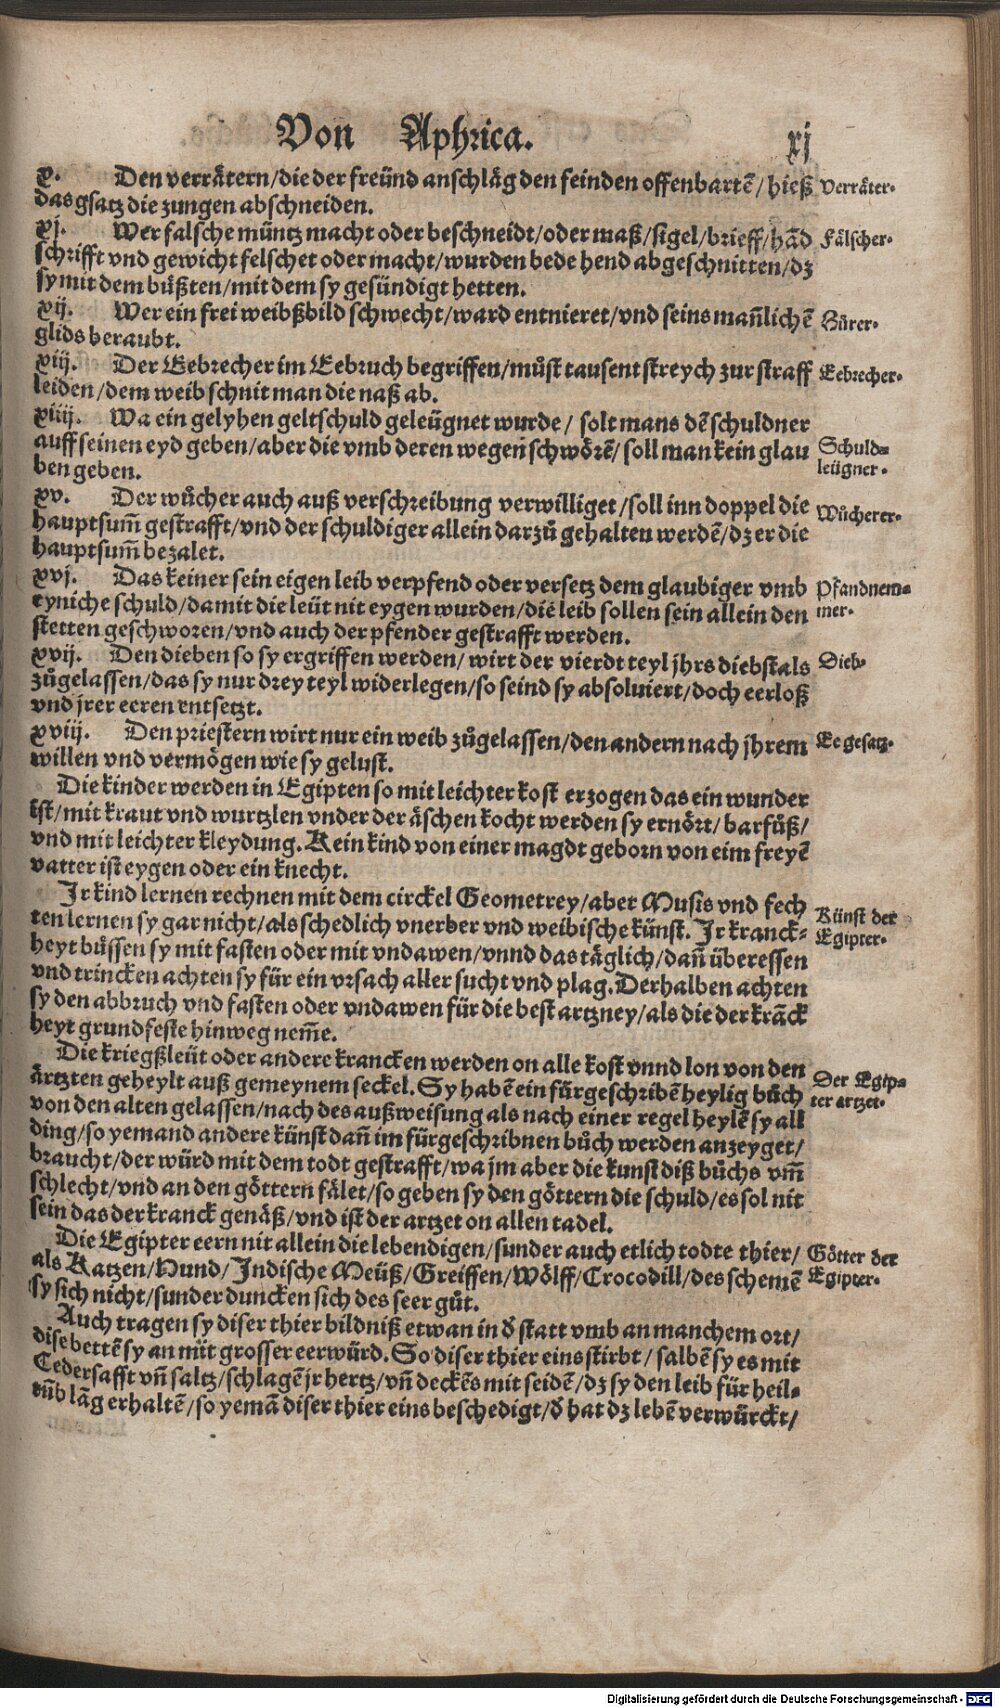 Von Aphrica. xj
x. Den verrätern/die der freünd anschläg den feinden offenbartē/hieß
das gsatz die zungen abschneiden.
Verräter.
xj. Wer falsche müntz macht oder beschneidt/oder maß/sigel/brieff/hād
schrifft vnd gewicht felschet oder macht/wurden bede hend abgeschnitten/dz
sy mit dem büßten/mit dem sy gesündigt hetten.
Fälscher.
xij. Wer ein frei weibßbild schwecht/ward entnieret/vnd seins mañlichē
glids beraubt.
Hůrer.
xiij. Der Eebrecher im Eebruch begriffen/můst tausent streych zur straff
leiden/dem weib schnit man die naß ab.
Eebrecher.
xiiij. Wa ein gelyhen geltschuld geleügnet wurde/ solt mans dē schuldner
auff seinen eyd geben/aber die vmb deren wegen schwörē/soll man kein glau
ben geben.
Schuld=
leügner.
xv. Der wůcher auch auß verschreibung verwilliget/soll inn doppel die
hauptsum̄ gestrafft/vnd der schuldiger allein darzů gehalten werdē/dz er die
hauptsum̄ bezalet.
Wůcherer.
xvj. Das keiner sein eigen leib verpfend oder versetz dem glaubiger vmb
eyniche schuld/damit die leüt nit eygen wurden/die leib sollen sein allein den
stetten geschworen/vnd auch der pfender gestrafft werden.
Pfandnem=
mer.
xvij. Den dieben so sy ergriffen werden/ wirt der vierdt teyl jhrs diebstals
zůgelassen/das sy nur drey teyl widerlegen/so seind sy absoluiert/doch eerloß
vnd jrer eeren entsetzt.
Dieb.
xviij. Den priestern wirt nur ein weib zůgelassen/den andern nach jhrem
willen vnd vermögen wie sy gelust.
Ee gesatz.
Die kinder werden in Egipten so mit leichter kost erzogen das ein wunder
ist/mit kraut vnd wurtzlen vnder der äschen kocht werden sy ernört/barfůß/
vnd mit leichter kleydung. Kein kind von einer magdt geborn von eim freyē
vatter ist eygen oder ein knecht.
Jr kind lernen rechnen mit dem circkel Geometrey/aber Musis vnd fech
ten lernen sy gar nicht/als schedlich vnerber vnd weibische künst. Jr kranck=
heyt büssen sy mit fasten oder mit vndawen/vnnd das täglich/dañ überessen
vnd trincken achten sy für ein vrsach aller sucht vnd plag. Derhalben achten
sy den abbruch vnd fasten oder vndawen für die best artzney/als die der krāck
heyt grundfeste hinweg nem̄e.
Künst der
Egipter.
Die kriegßleüt oder andere krancken werden on alle kost vnnd lon von den
ärtzten geheylt auß gemeynem seckel. Sy habē ein fürgeschribē heylig bůch
von den alten gelassen/nach des außweisung als nach einer regel heylē sy all
ding/so yemand andere künst dañ im fürgeschribnen bůch werden anzeyget/
braucht/der würd mit dem todt gestrafft/wa jm aber die kunst diß bůchs vm̄
schlecht/vnd an den göttern fälet/so geben sy den göttern die schuld/es sol nit
sein das der kranck genäß/vnd ist der artzet on allen tadel.
Der Egip=
ter artzet.
Die Egipter eern nit allein die lebendigen/sunder auch etlich todte thier/
als Katzen/Hund/Indische Meüß/Greiffen/Wölff/Crocodill/des schemē
sy sich nicht/sunder duncken sich des seer gůt.
Götter der
Egipter.
Auch tragen sy diser thier bildniß etwan in d̄ statt vmb an manchem ort/
dise bettē sy an mit grosser eerwürd. So diser thier eins stirbt/ salbē sy es mit
Cedersafft vñ saltz/schlagē jr hertz/vñ deckēs mit seidē/dz sy den leib für heil=
tūb lāg erhaltē/so yemā diser thier eins beschedigt/d̄ hat dz lebē verwürckt/
Digitalisierung gefördert durch die Deutsche Forschungsgemeinschaft - DFG